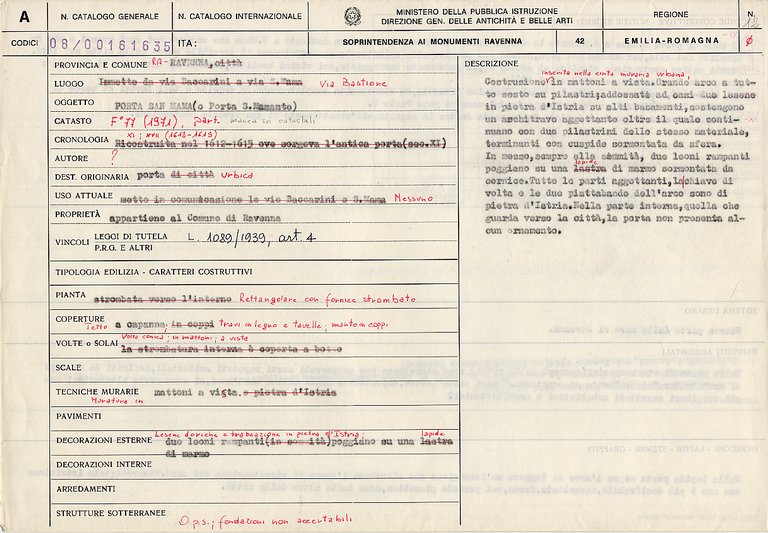 A
N. CATALOGO GENERALE
N. CATALOGO INTERNAZIONALE
MINISTERO DELLA PUBBLICA ISTRUZIONE
DIREZIONE GEN. DELLE ANTICHITÀ E BELLE ARTI
REGIONE
N.
12
CODICI
08/00161635
ITA:
SOPRINTENDENZA AI MONUMENTI RAVENNA
42
EMILIA-ROMAGNA
PROVINCIA E COMUNE RA- RAVENNA, città
LUOGO Immette da via Baccarini a via S.Mama Via Bastione
OGGETTO PORTA SAN MAMA(o Porta S.Mamante)
CATASTO F° 77 (1971), part. manca in catastali
XI; XVII (1612-1613)
CRONOLOGIA Ricostruita nel 1612-1615 ove sorgeva l'antica porta(sec.XI)
AUTORE ?
DEST. ORIGINARIA porta di città urbica
USO ATTUALE mette in comunicazione le vie Baccarini e S.Mama Nessuno
PROPRIETÀ appartiene al Comune di Ravenna
VINCOLI
LEGGI DI TUTELA L. 1089/1939, art. 4
P.R.G. E ALTRI
TIPOLOGIA EDILIZIA - CARATTERI COSTRUTTIVI
PIANTA strombata verso l'interno Rettangolare con fornice strombato
COPERTURE Tetto a capanna, in coppi travi in legno e tavelle; manto in coppi
Volte conica; in mattoni; a vista
VOLTE o SOLAI la strombatura interna è coperta a botte
SCALE
TECNICHE MURARIE mattoni a vista. e pietra d'Istria
Muratura in
PAVIMENTI
Lesene doriche e trabeazione in pietra d'Istria; lapide
DECORAZIONI ESTERNE due leoni rampanti(in sommità)poggiano su una lastra
di marmo
DECORAZIONI INTERNE
ARREDAMENTI
STRUTTURE SOTTERRANEE
O p.s.; fondazioni non accertabili
DESCRIZIONE
inserita nella cinta muraria urbana,
Costruzione in mattoni a vista.Grande arco a tut-
to sesto su pilastri;addossate ad essi due lesene
in pietra d'Istria su alti basamenti,sostengono
un architrave aggettante oltre il quale conti-
nuano con due pilastrini dello stesso materiale,
terminanti con cuspide sormontata da sfera.
In mezzo,sempre alla sommità, due leoni rampanti
lapide
poggiano su una lastra di marmo sormontata da
cornice.Tutte le parti aggettanti,la chiave di
volta e le due piattabande dell'arco sono di
pietra d'Istria.Nella parte interna,quella che
guarda verso la città,la porta non presenta al-
cun ornamento.